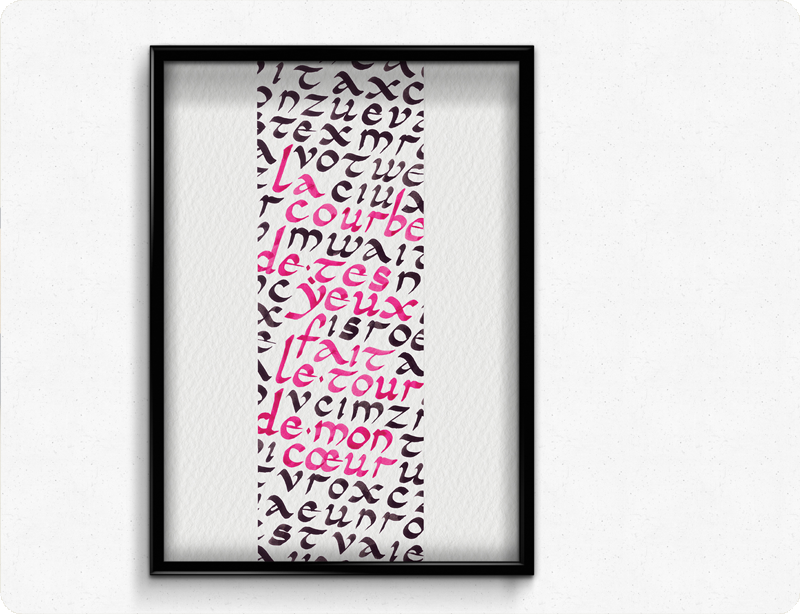 ITAXC
nzuev
stexmr
votwe
la ciux
courbe
mwait
de·tes n
c yeux
x isroe
fait a
le·tour
vcimzr
de·mon
i cœur u
vroxc
aeunro
st vaie